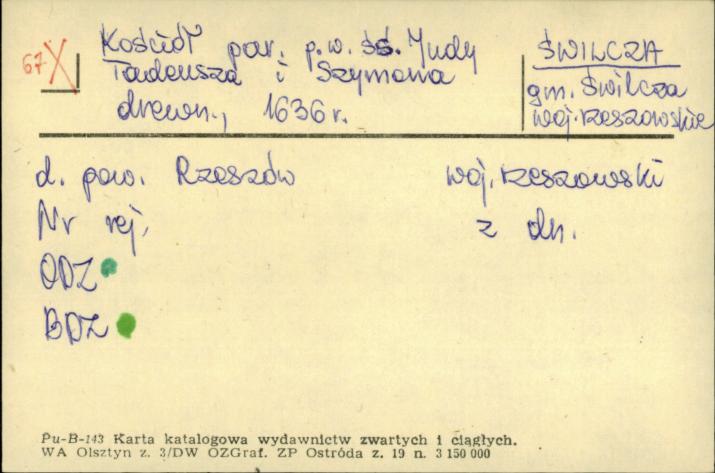 67 Kościół par. p.w. śś. Judy
Tadeusza i Szymona
drewn., 1636 r.
ŚWILCZA
gm. Świlcza
woj. rzeszowskie
d. pow. Rzeszów woj. rzeszowski
Nr rej. z dn.
ODZ
BDZ
Pu-B-143 Karta katalogowa wydawnictw zwartych i ciągłych.
WA Olsztyn z. 3/DW OZGraf. ZP Ostróda z. 19 n. 3 150 000